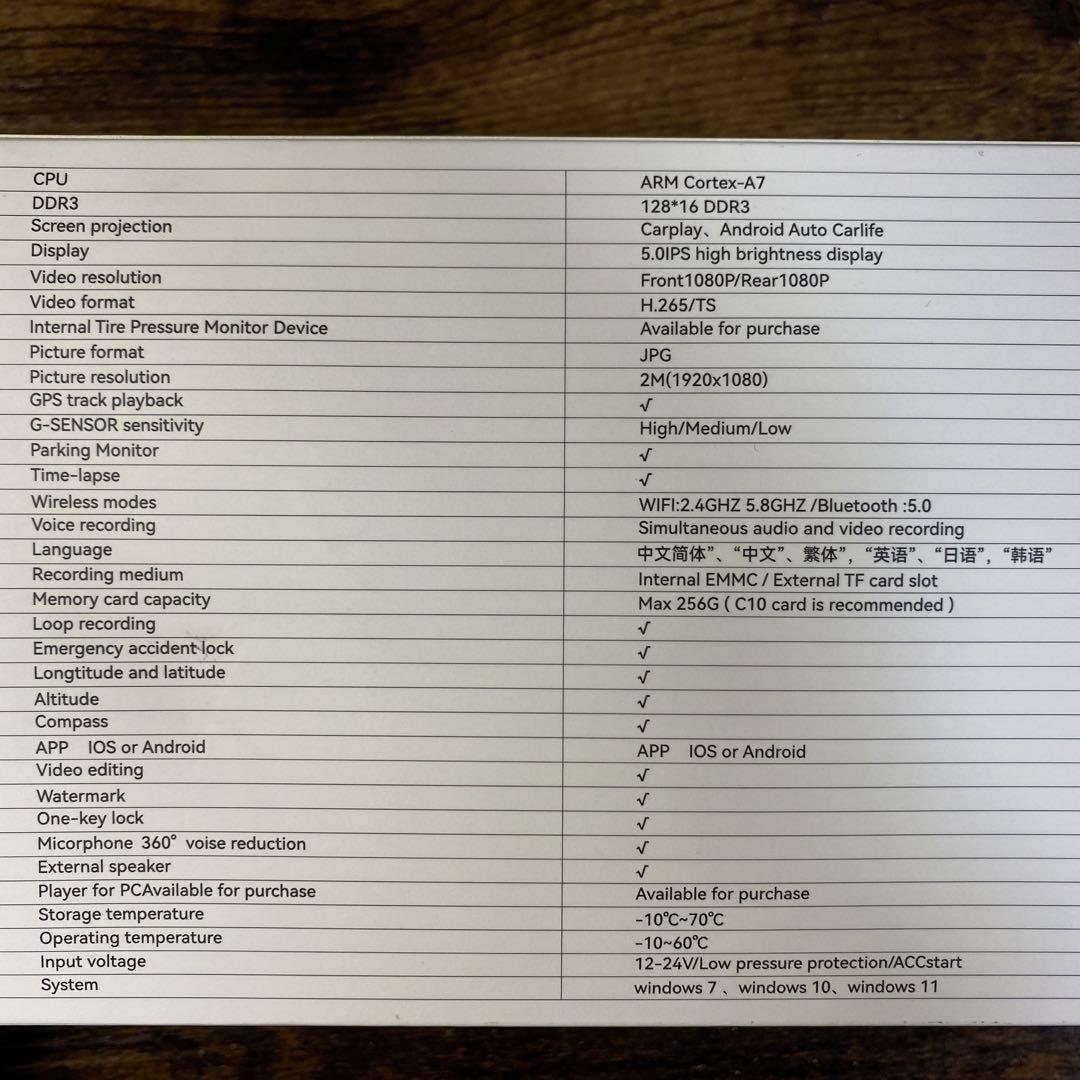 CPU ARM Cortex-A7
DDR3 128*16 DDR3
Screen projection Carplay、Android Auto Carlife
Display 5.0IPS high brightness display
Video resolution Front1080P/Rear1080P
Video format H.265/TS
Internal Tire Pressure Monitor Device Available for purchase
Picture format JPG
Picture resolution 2M(1920x1080)
GPS track playback √
G-SENSOR sensitivity High/Medium/Low
Parking Monitor √
Time-lapse √
Wireless modes WIFI:2.4GHZ 5.8GHZ /Bluetooth :5.0
Voice recording Simultaneous audio and video recording
Language 中文简体”、“中文”、繁体”,“英语”、“日语”,“韩语”
Recording medium Internal EMMC / External TF card slot
Memory card capacity Max 256G ( C10 card is recommended )
Loop recording √
Emergency accident lock √
Longtitude and latitude √
Altitude √
Compass √
APP IOS or Android APP IOS or Android
Video editing √
Watermark √
One-key lock √
Micorphone 360° voise reduction √
External speaker √
Player for PCAvailable for purchase Available for purchase
Storage temperature -10℃~70℃
Operating temperature -10~60℃
Input voltage 12-24V/Low pressure protection/ACCstart
System windows 7 、windows 10、windows 11